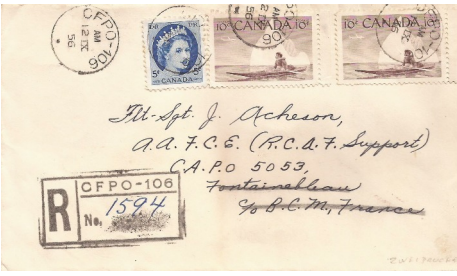 CFPO-106
AM
12 IX
56
5¢ 5¢
CANADA
10¢ CANADA 10¢
10¢ CANADA 10¢
Flt-Sgt. J. Acheson,
A.A.F.C.E. (R.C.A.F Support)
C.A.P.O 5053,
Fontainebleau
c/o B.C.M, France
CFPO-106
R No. 1594